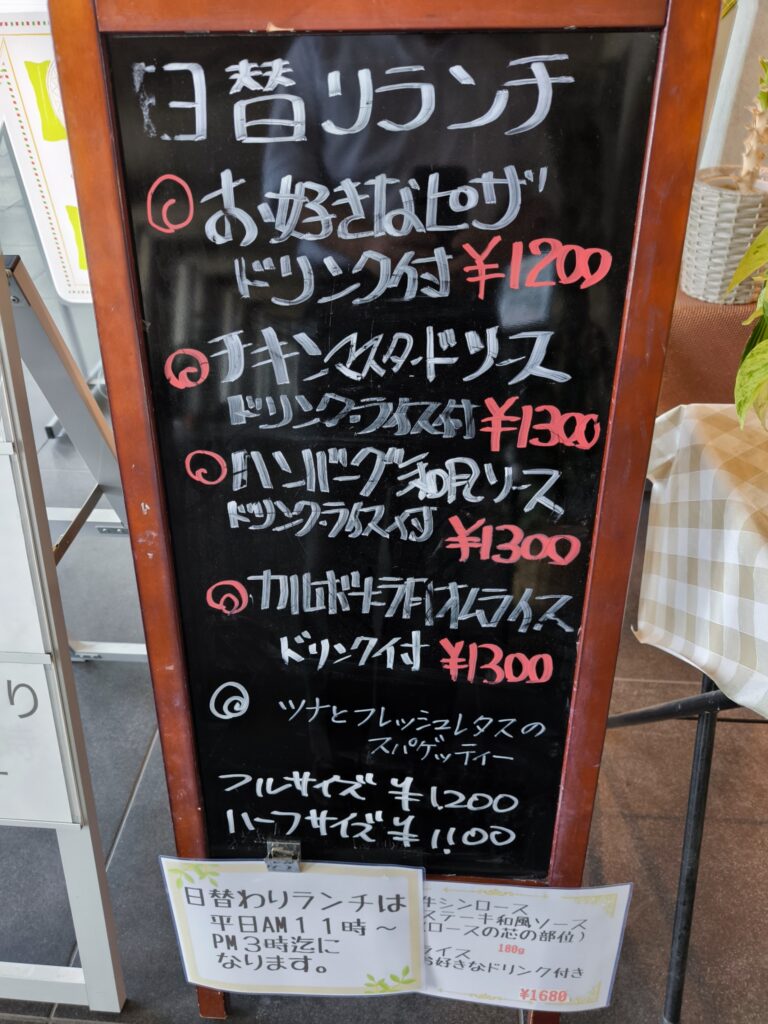 日替リランチ
お好きなピザ
ドリンク付 ¥1200
チキンマスタードソース
ドリンク・ライス付 ¥1300
ハンバーグ和風ソース
ドリンク・ライス付 ¥1300
カルボナーラ オムライス
ドリンク付 ¥1300
ツナとフレッシュレタスの
スパゲッティー
フルサイズ ¥1,200
ハーフサイズ ¥1,100
日替わりランチは
平日AM11時～
PM3時迄に
なります。
牛シンロース
ステーキ和風ソース
ロースの芯の部位)
180g
ライス
お好きなドリンク付き
¥1680
り